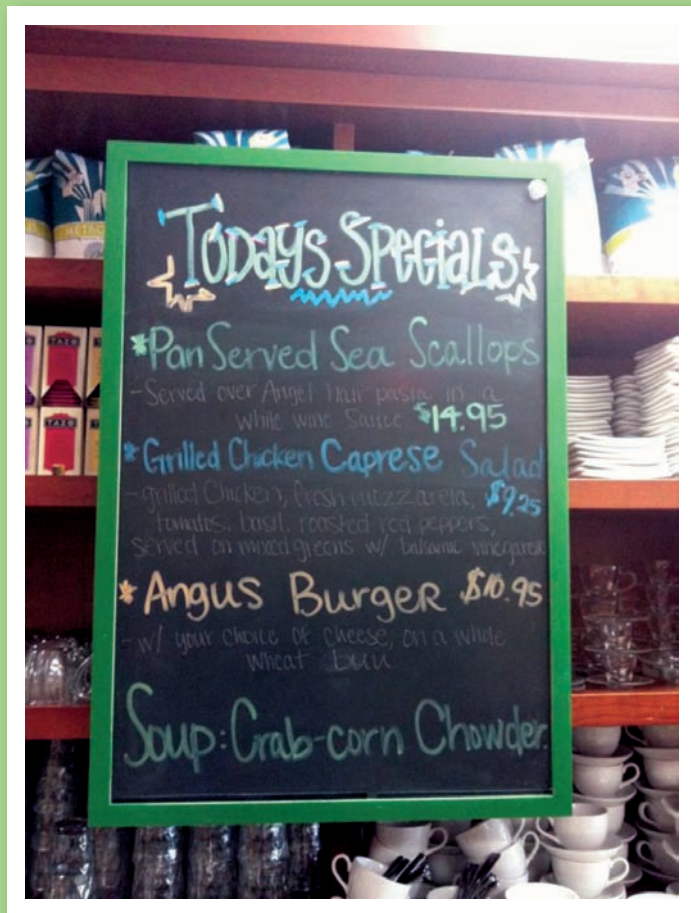 TODAYS SPECIALS
*Pan Served Sea Scallops
-Served over Angel hair pasta in a
white wine Sauce $14.95
*Grilled Chicken Caprese Salad
-grilled Chicken, fresh mozzarela, $9.25
tomatos, basil, roasted red peppers,
served on mixed greens w/ balsamic
*ANGUS BURGER $10.95
-w/ your choice of cheese, on a whole
wheat bun
Soup: Crab-corn Chowder.
TAZO
TAZO
METRO